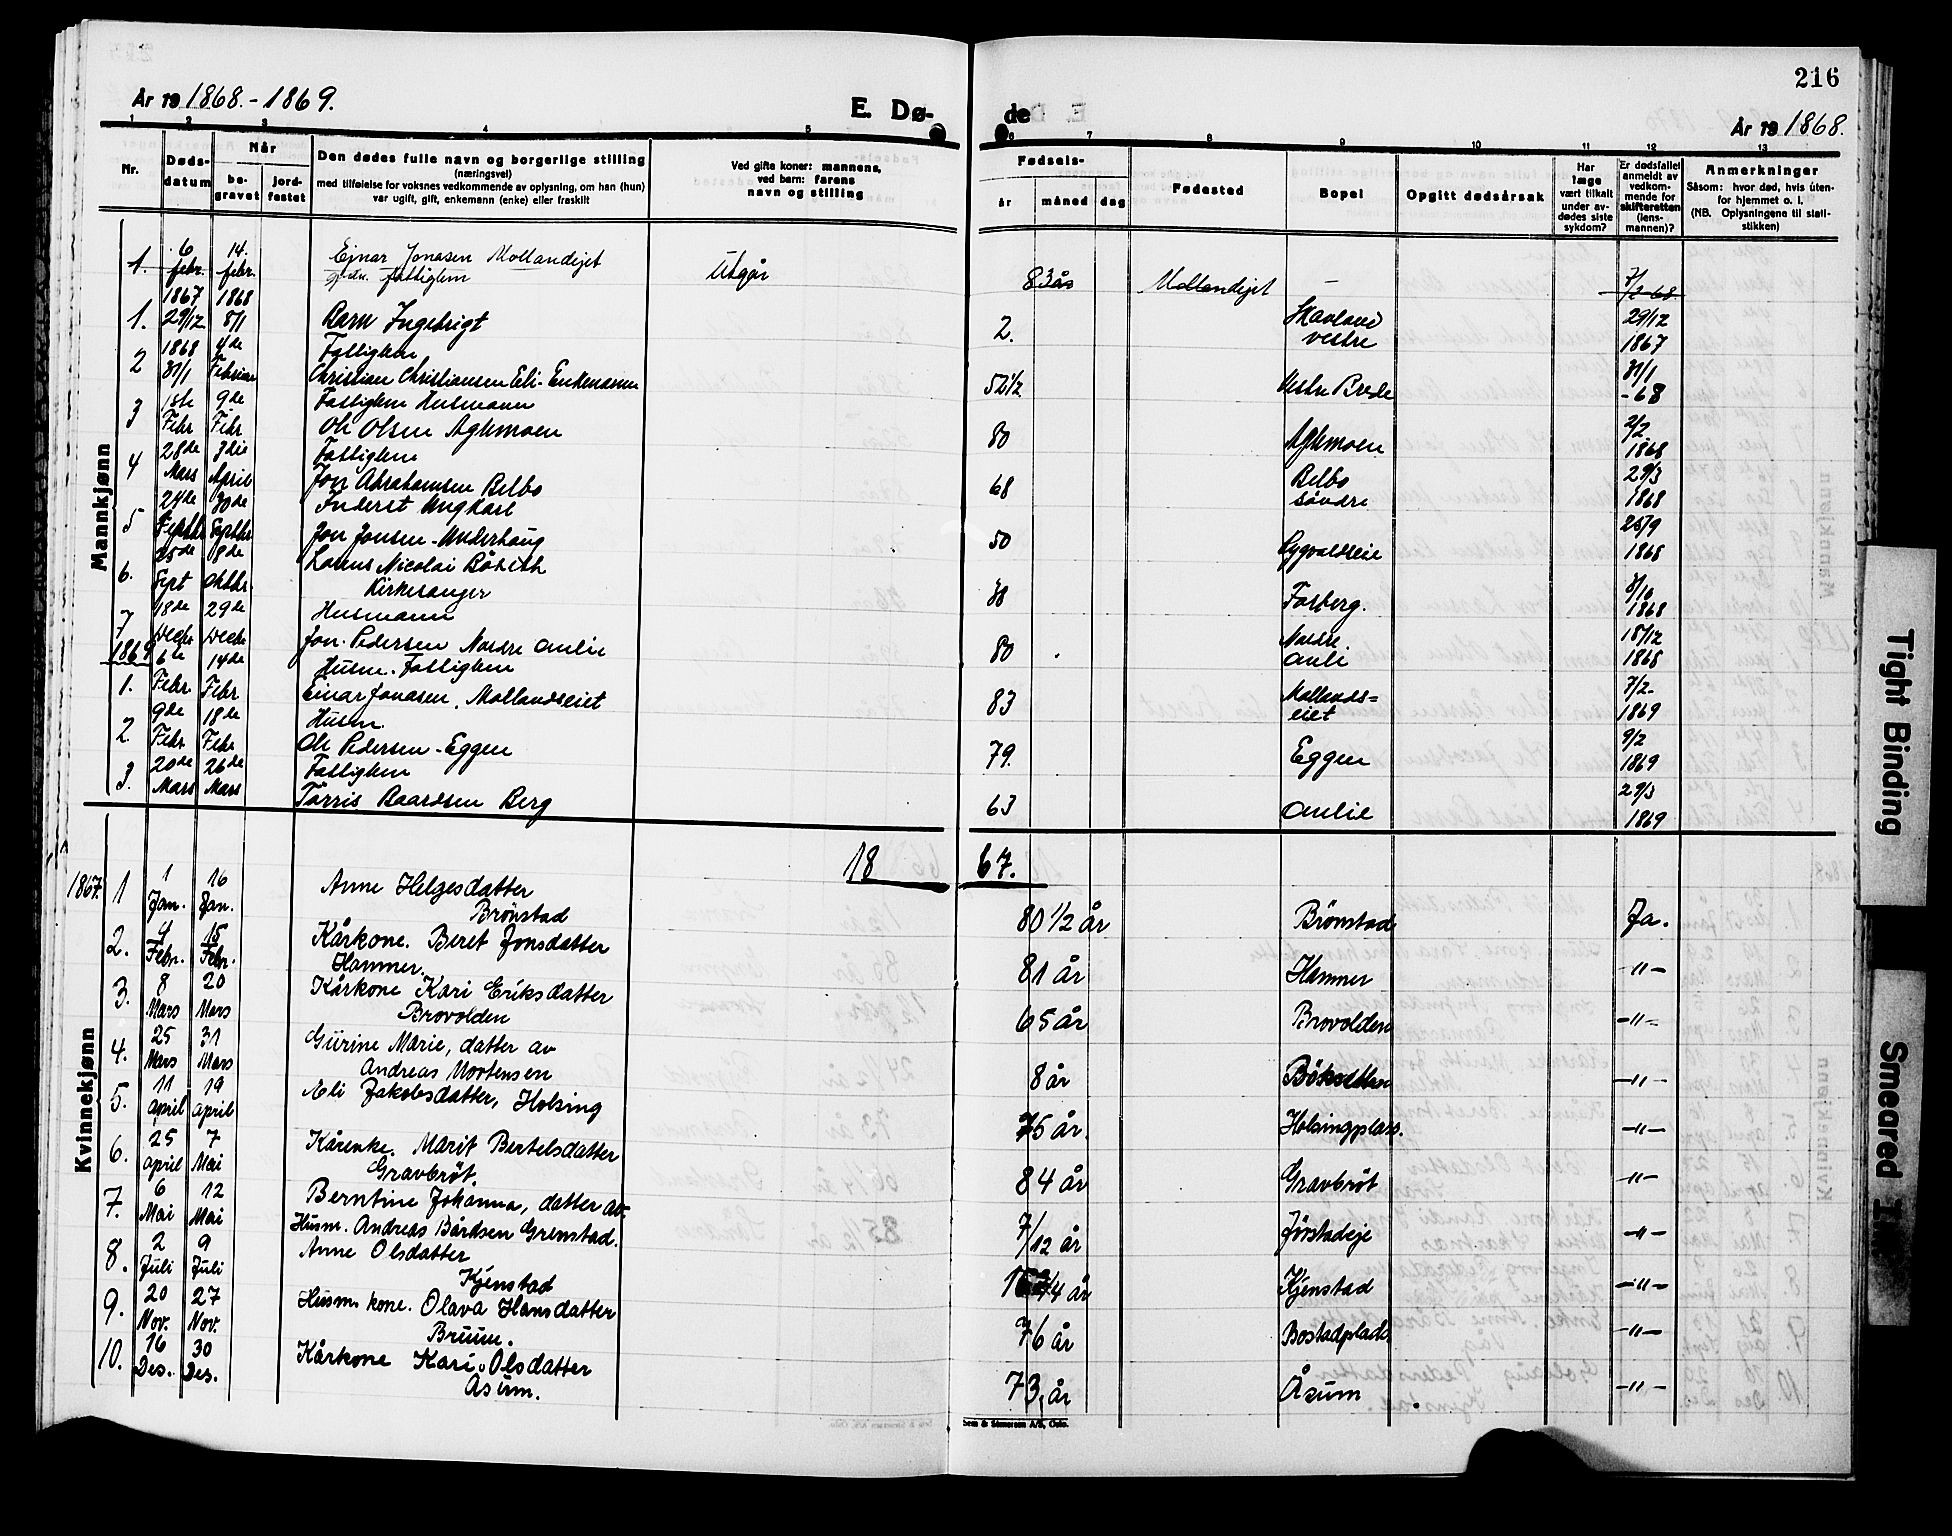 216
År 19 1868.-1869.
E. Dø-
de
År 19 1868.
1 2 3 4 5 6 7 8 9 10 11 12 13
Nr.
Døds-
datum
Når
be-
gravet
jord-
festet
Den dødes fulle navn og borgerlige stilling
(næringsvei)
med tilføielse for voksnes vedkommende av oplysning, om han (hun)
var ugift, gift, enkemann (enke) eller fraskilt
Ved gifte koner: mannens,
ved barn: farens
navn og stilling
Fødsels-
år
måned
dag
Fødested
Bopel
Opgitt dødsårsak
Har
læge
vært tilkalt
under av-
dødes siste
sykdom?
Er dødsfallet
anmeldt av
vedkom-
mende for
skifteretten
(lens-
mannen)?
Anmerkninger
Såsom: hvor død, hvis uten-
for hjemmet o. l.
(NB. Oplysningene til stati-
stikken)
Mannkjønn
1. 6 febr. 14. febr. Ejnar Jonasen Mollandejet Utgår 83 år Mollandejet – 7/2 68
fattiglem
1867 1868
1. 29/12 8/1 Barn Ingebrigt 2. Skavland vestre 29/12 1867
1868 4de Fattiglem
2 31/1 Februar Christian Christiansen Eli - Enkemann 52 1/2 Vestre Brede 31/1 -68
1ste 9de Fattiglem Husmann
3 Febr Febr Ole Olsen Aglmoen 80 Aglmoen 2/2 1868
28de 3die Fattiglem
4 Mars April Jon Abrahamsen Belbo 68 Belbo søndre 29/3 1868
24de 30de Inderst Ungkarl
5 Septbr Septbr Jon Jonsen - Underhaug 50 25/9 1868
25de 8de Larus Nicolai
6. Sept Oktbr. Kirkesanger 88 Fosberg. 8/10 1868
18de 29de Husmann
7 Decbr Decbr Jon Pedersen Nordre Aulie 80 Nordre Auli 18/12 1868
1869 6te 14de Husm. Fattiglem
1. Febr Febr Einar Jonasen. Mollandseiet 83 Mollands=eiet 7/2 1869
9de 18de Husm.
2. Febr Febr Ole Pedersen - Eggen 79. Eggen 9/2 1869
20de 26de Fattiglem
3. Mars Mars Torris Baardsen Berg 63 Aulie 21/3 1869
18 67.
Kvinnekjønn
1867. 1 1 Jan. 16 Jan. Anne Helgesdatter Brønstad 80 1/2 år Brønstad Ja.
2. 4 Febr. 15 Febr. Kårkone. Beret Jonsdatter Hammer. 81 år Hammer -"-
3. 8 Mars 20 Mars Kårkone Kari Eriksdatter Brovolden 65 år Brovolden -"-
4. 25 Mars 31 Mars Gurine Marie, datter av Andreas Mortensen 8 år -"-
5. 11 april 19 april Eli Jakobsdatter, Holsing 75 år. Holsingplass. -"-
6. 25 april 7 Mai Kårenke. Marit Bertelsdatter Gravbrøt. 84 år Gravbrøt -"-
7. 6 Mai 12 Mai Berntine Johanna, datter av
Husm. Andreas Bårdsen Grenstad. 7/12 år Jørstadeje -"-
8. 2 Juli 9 Juli Anne Olsdatter Kjenstad 3/4 år Kjenstad -"-
9. 20 Nov. 27 Nov. Husm. kone. Olava Hansdatter Bruem. 76 år Bostadplads -"-
10. 16 Des. 30 Des. Kårkone Kari Olsdatter Åsum. 73. år Åsum -"-
Tight Binding
Smeared Ink